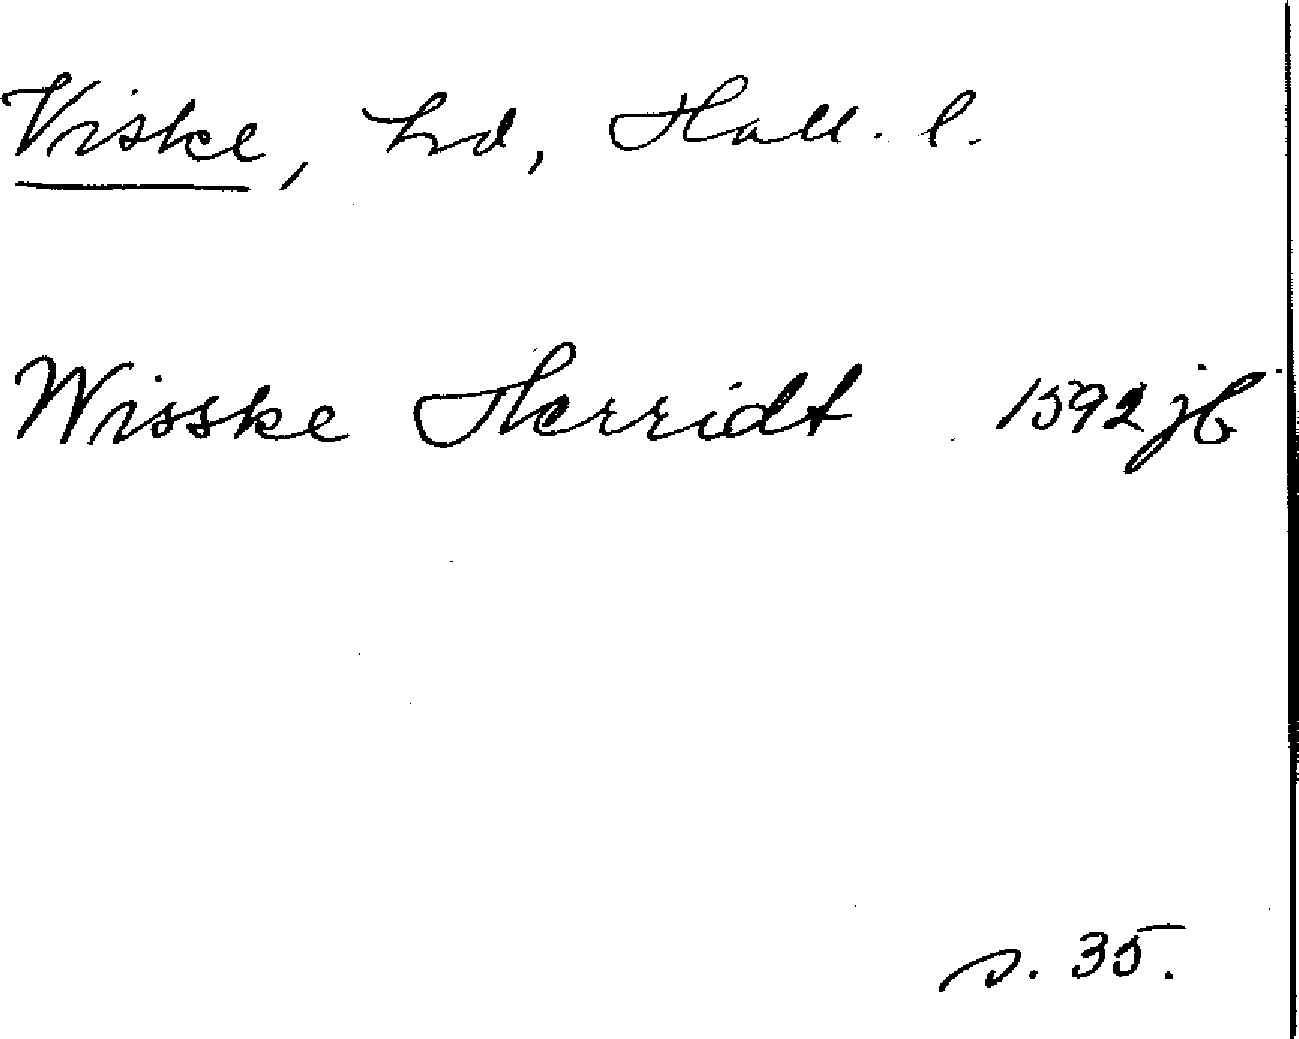 Viske, hd, Hall. l.
Wisske Herridt 1592 jb
s. 35.